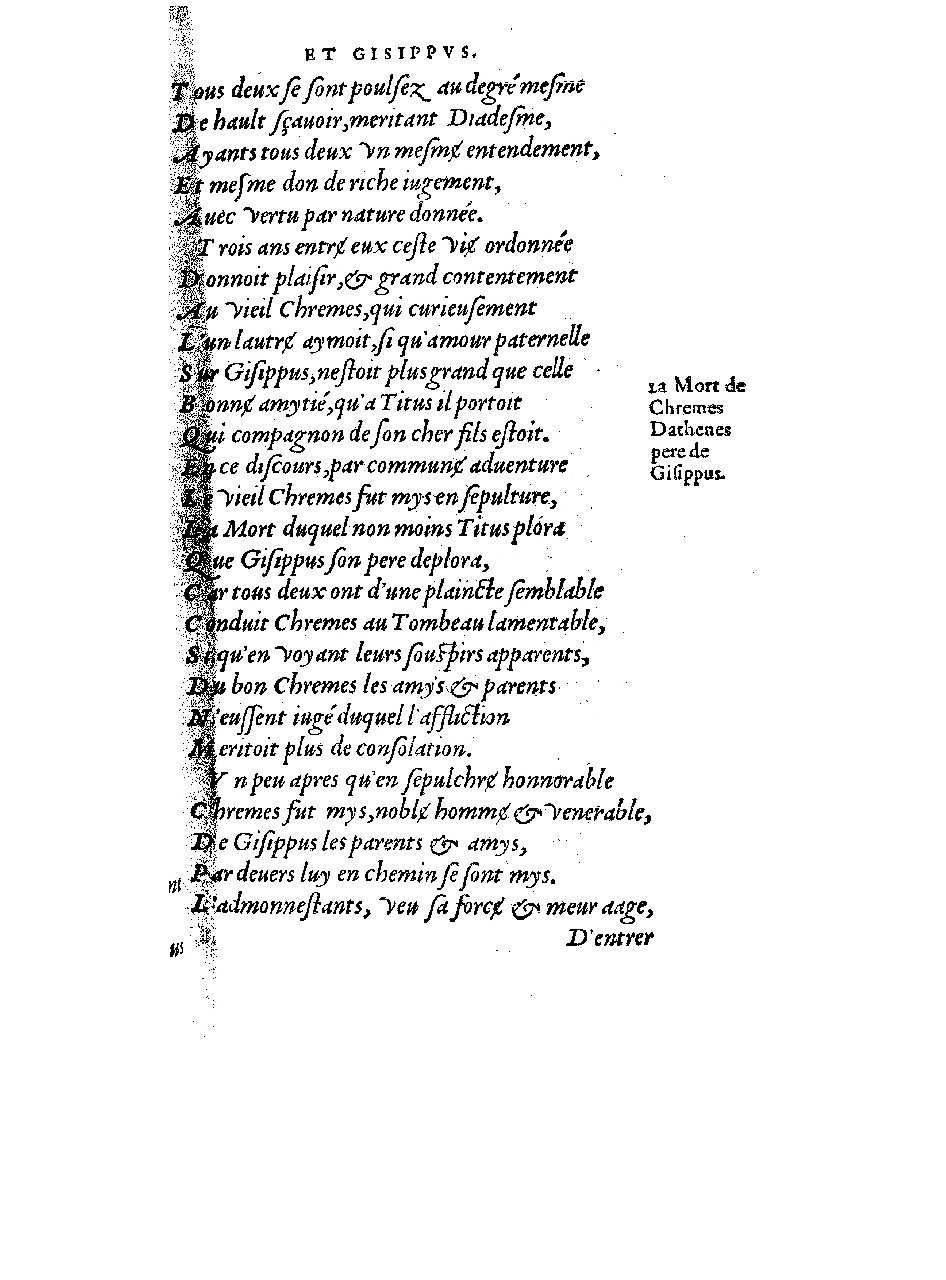 ET GISIPPVS.
Tous deux se sont poulsez au degré mesme
De hault sçauoir, meritant Diadesme,
Ayants tous deux vn mesmɇ entendement,
Et mesme don de riche iugement,
Auec vertu par nature donnée.
Trois ans entrɇ eux ceste viɇ ordonnée
Donnoit plaisir, & grand contentement
Au vieil Chremes, qui curieusement
L'un lautrɇ aymoit, si qu'amour paternelle
Sur Gisippus, nestoit plus grand que celle
Bonnɇ amytié, qu'a Titus il portoit
Qui compagnon de son cher fils estoit.
En ce discours, par communɇ aduenture
Le vieil Chremes fut mys en sepulture,
La Mort duquel non moins Titus plóra
Que Gisippus son pere deplora,
Car tous deux ont d'une plaincte semblable
Conduit Chremes au Tombeau lamentable,
Si qu'en voyant leurs souspirs apparents,
Du bon Chremes les amys & parents
N'eussent iugé duquel l'affliction
Meritoit plus de consolation.
Vn peu apres qu'en sepulchrɇ honnorable
Chremes fut mys, noblɇ hommɇ & venerable,
De Gisippus les parents & amys,
Par deuers luy en chemin se sont mys.
L'admonnestants, veu sa forcɇ & meur aage,
D'entrer
La Mort de
Chremes
Dathenes
pere de
Gisippus.